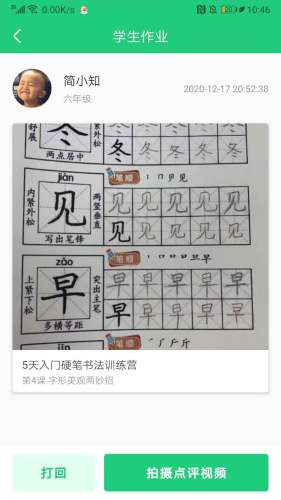 0.00K/s 10:46
学生作业
简小知
六年级
2020-12-17 20:52:38
舒展 冬 外松 冬 冬 冬 冬
两点居中
jiàn
笔顺 丨 冂 贝 见
内紧外松 见 两竖垂直 见 见 见 见 见
见 见 见 见 见
写出笔锋
zǎo
笔顺
上紧下松 早 突出主笔 早 早 早 早 早
早 早 早 早 早
多横等距
jīn
笔顺 斤
5天入门硬笔书法训练营
第4课 字形美观两妙招
打回
拍摄点评视频